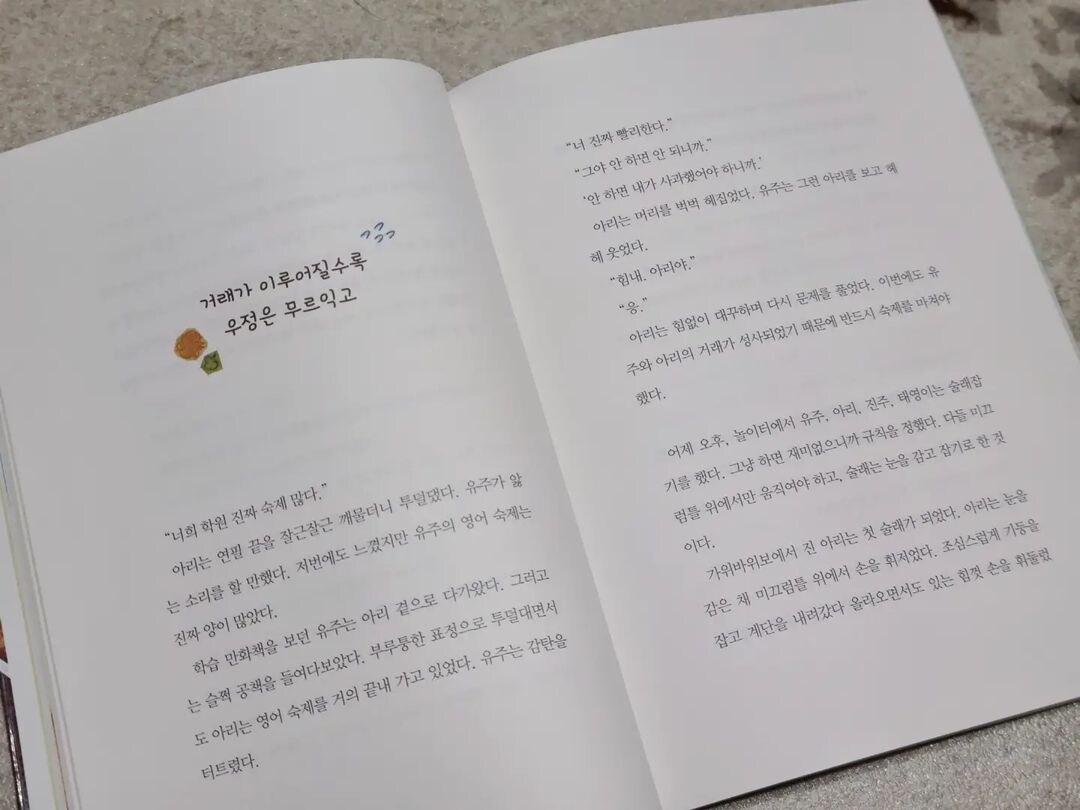 거래가 이루어질수록
우정은 무르익고
"너희 학원 진짜 숙제 많다."
아리는 연필 끝을 잘근잘근 깨물더니 투덜댔다. 유주가 앓
는 소리를 할 만했다. 저번에도 느꼈지만 유주의 영어 숙제는
진짜 양이 많았다.
학습 만화책을 보던 유주는 아리 곁으로 다가왔다. 그러고
는 슬쩍 공책을 들여다보았다. 부루퉁한 표정으로 투덜대면서
도 아리는 영어 숙제를 거의 끝내 가고 있었다. 유주는 감탄을
터트렸다.
"너 진짜 빨리한다."
"그야 안 하면 안 되니까."
'안 하면 내가 사과했어야 하니까.'
아리는 머리를 벅벅 헤집었다. 유주는 그런 아리를 보고 헤
헤 웃었다.
"힘내. 아리야."
"응."
아리는 힘없이 대꾸하며 다시 문제를 풀었다. 이번에도 유
주와 아리의 거래가 성사되었기 때문에 반드시 숙제를 마쳐야
했다.
어제 오후, 놀이터에서 유주, 아리, 진주, 태영이는 술래잡
기를 했다. 그냥 하면 재미없으니까 규칙을 정했다. 다들 미끄
럼틀 위에서만 움직여야 하고, 술래는 눈을 감고 잡기로 한 것
이다.
가위바위보에서 진 아리는 첫 술래가 되었다. 아리는 눈을
감은 채 미끄럼틀 위에서 손을 휘저었다. 조심스럽게 기둥을
잡고 계단을 내려갔다 올라오면서도 있는 힘껏 손을 휘둘렀